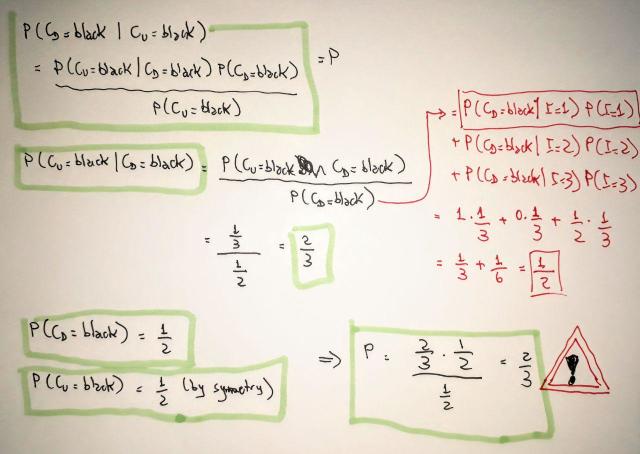 P(C_D=black | C_U=black)
= P(C_U=black | C_D=black) P(C_D=black) / P(C_U=black) = P
P(C_U=black | C_D=black) = P(C_U=black ∩ C_D=black) / P(C_D=black)
= (1/3) / (1/2) = 2/3
→ = P(C_D=black | I=1) P(I=1)
+ P(C_D=black | I=2) P(I=2)
+ P(C_D=black | I=3) P(I=3)
= 1 · 1/3 + 0 · 1/3 + 1/2 · 1/3
= 1/3 + 1/6 = 1/2
P(C_D=black) = 1/2
P(C_U=black) = 1/2 (by symmetry)
⇒ P = (2/3 · 1/2) / (1/2) = 2/3
!